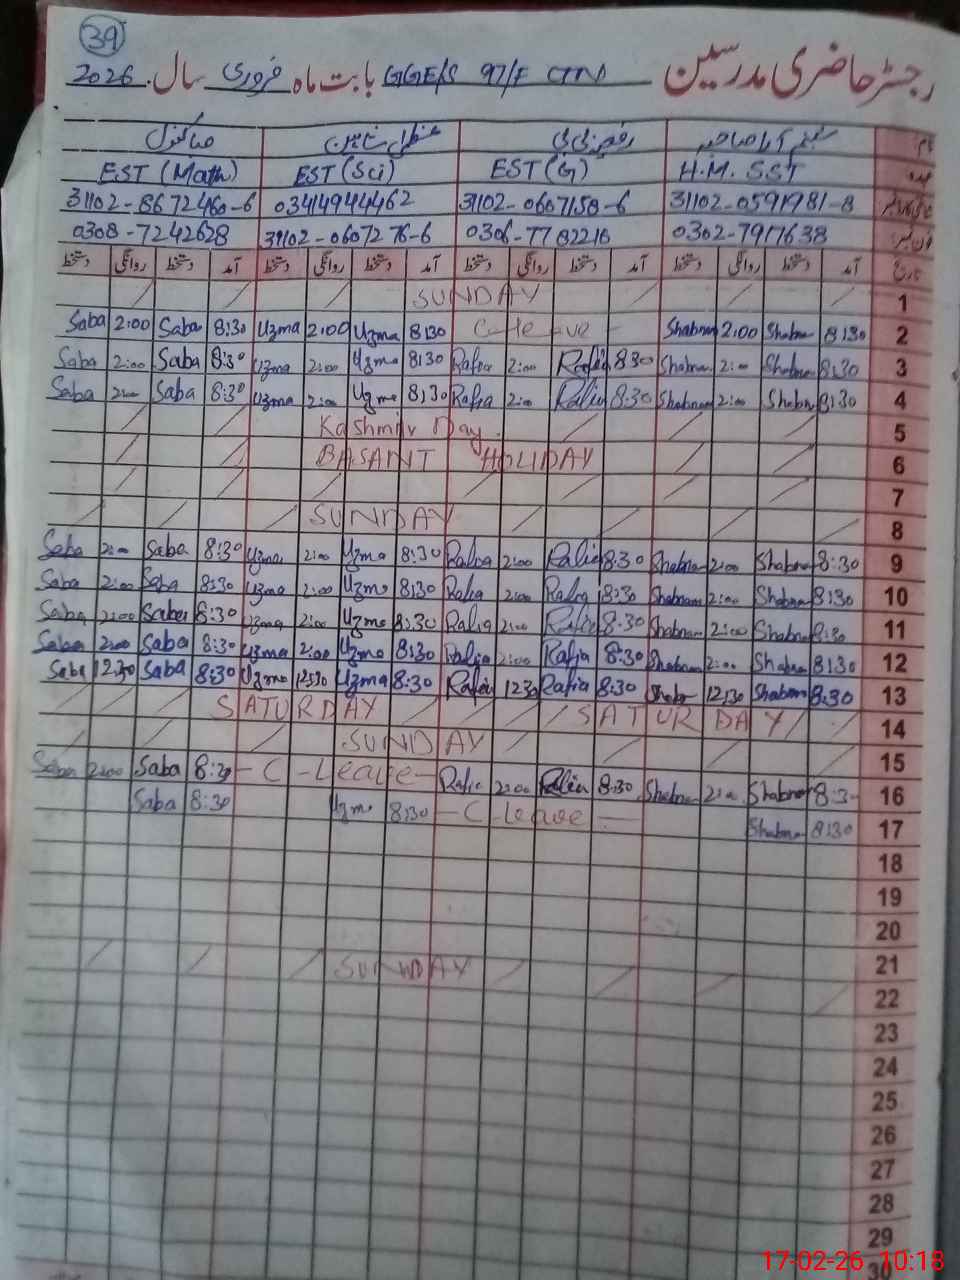 39
رجسٹر حاضری مدرسین GGE/S 97/F CTN بابت ماہ فروری سال 2026
نام
صبا کنول
عہدہ H.M. SST EST (G) EST (Sci) EST (Math)
31102-0591981-8 31102-0607158-6 03414944462 31102-8672460-6
0302-7917638 0306-7782216 31102-0607276-6 0308-7242628
تاریخ آمد دستخط روانگی دستخط آمد دستخط روانگی دستخط آمد دستخط روانگی دستخط آمد دستخط روانگی دستخط
SUNDAY 1
Saba 2:00 Saba 8:30 Uzma 2:00 Uzma 8:30 C-leave Shabnam 2:00 Shabnam 8:30 2
Saba 2:00 Saba 8:30 Uzma 2:00 Uzma 8:30 Rafia 2:00 Rafia 8:30 Shabnam 2:00 Shabnam 8:30 3
Saba 2:00 Saba 8:30 Uzma 2:00 Uzma 8:30 Rafia 2:00 Rafia 8:30 Shabnam 2:00 Shabnam 8:30 4
Kashmir Day 5
BASANT HOLIDAY 6
7
SUNDAY 8
Saba 2:00 Saba 8:30 Uzma 2:00 Uzma 8:30 Rafia 2:00 Rafia 8:30 Shabnam 2:00 Shabnam 8:30 9
Saba 2:00 Saba 8:30 Uzma 2:00 Uzma 8:30 Rafia 2:00 Rafia 8:30 Shabnam 2:00 Shabnam 8:30 10
Saba 2:00 Saba 8:30 Uzma 2:00 Uzma 8:30 Rafia 2:00 Rafia 8:30 Shabnam 2:00 Shabnam 8:30 11
Saba 2:00 Saba 8:30 Uzma 2:00 Uzma 8:30 Rafia 2:00 Rafia 8:30 Shabnam 2:00 Shabnam 8:30 12
Saba 12:30 Saba 8:30 Uzma 12:30 Uzma 8:30 Rafia 12:30 Rafia 8:30 Shabnam 12:30 Shabnam 8:30 13
SATURDAY SATURDAY 14
SUNDAY 15
Saba 2:00 Saba 8:30 - C - Leave - Rafia 2:00 Rafia 8:30 Shabnam 2:00 Shabnam 8:30 16
Saba 8:30 Uzma 8:30 - C Leave - Shabnam 8:30 17
18
19
20
SUNDAY 21
22
23
24
25
26
27
28
29
30
17-02-26 10:18